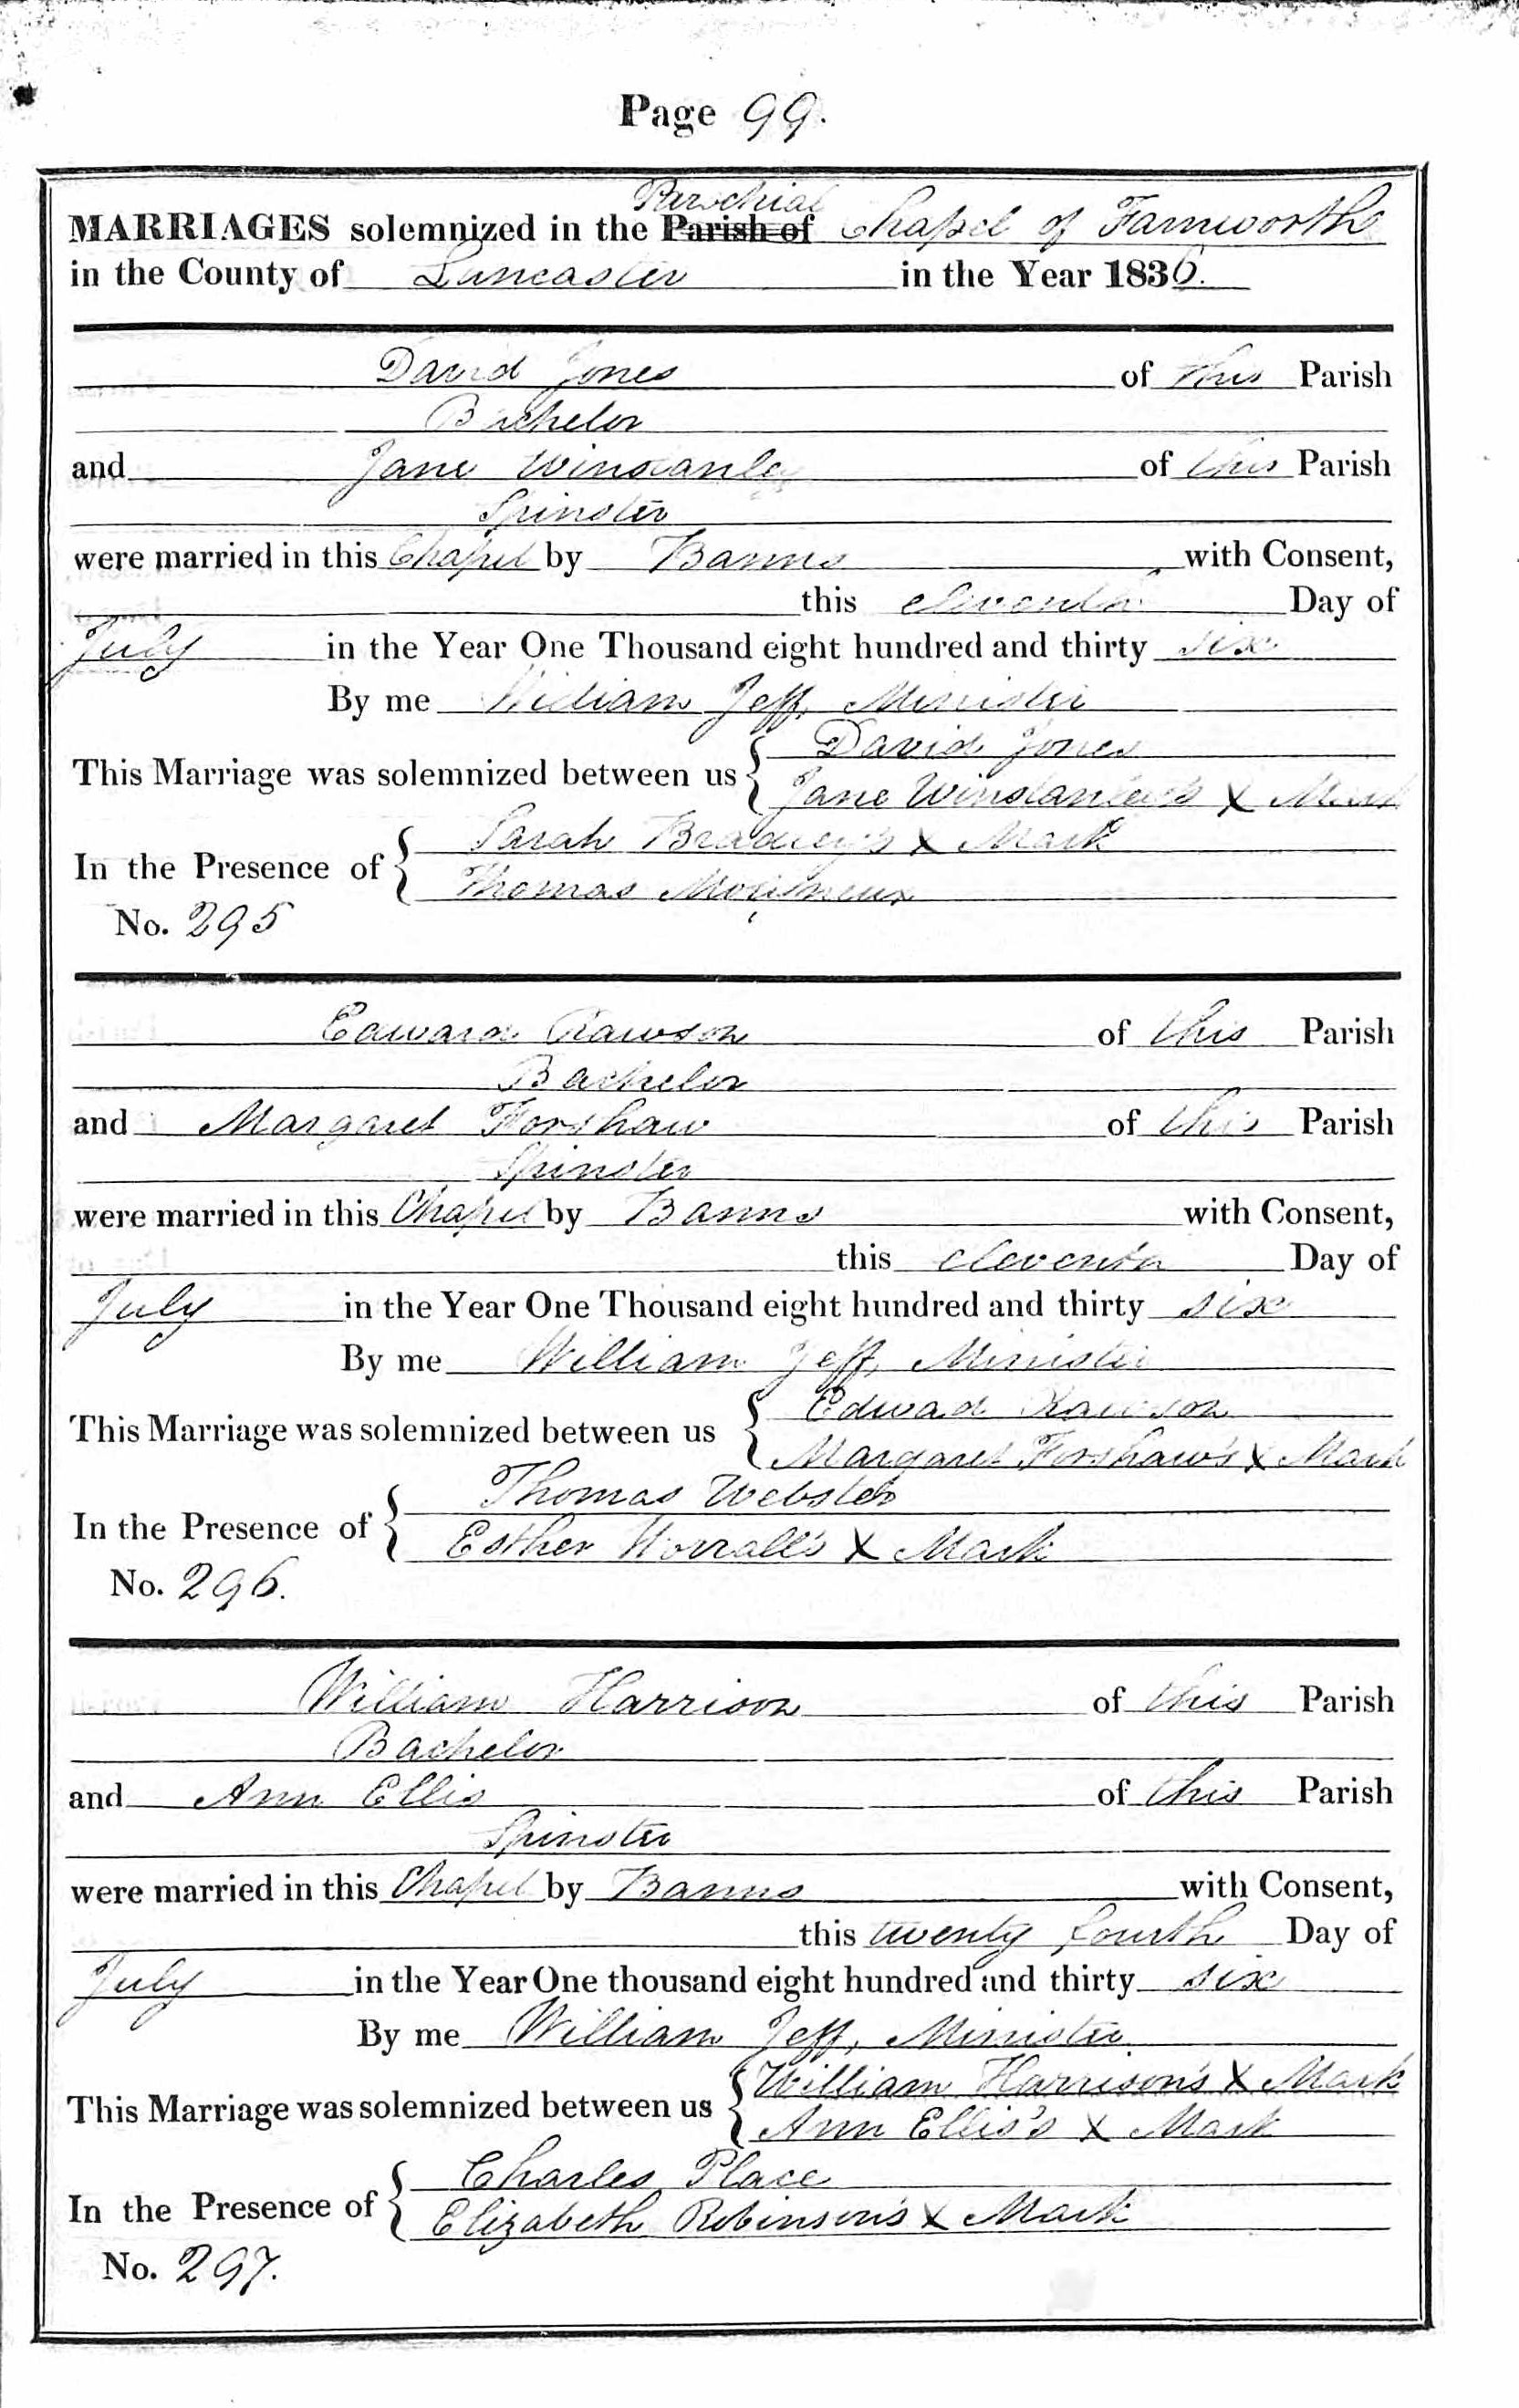 Page 99.
Parochial
MARRIAGES solemnized in the Parish of Chapel of Farnworth
in the County of Lancaster in the Year 1836.
David Jones of this Parish
Bachelor
and Jane Winstanley of this Parish
Spinster
were married in this Chapel by Banns with Consent,
this eleventh Day of
July in the Year One Thousand eight hundred and thirty six
By me William Jeff, Minister
David Jones
This Marriage was solemnized between us
Jane Winstanley's X Mark
Sarah Bradley's X Mark
In the Presence of
Thomas Molyneux
No. 295
Edward Rawson of this Parish
Bachelor
and Margaret Forshaw of this Parish
Spinster
were married in this Chapel by Banns with Consent,
this eleventh Day of
July in the Year One Thousand eight hundred and thirty six
By me William Jeff, Minister
Edward Rawson
This Marriage was solemnized between us
Margaret Forshaw's X Mark
Thomas Webster
In the Presence of
Esther Worrall's X Mark
No. 296.
William Harrison of this Parish
Bachelor
and Ann Ellis of this Parish
Spinster
were married in this Chapel by Banns with Consent,
this twenty fourth Day of
July in the Year One thousand eight hundred and thirty six
By me William Jeff, Minister
William Harrison's X Mark
This Marriage was solemnized between us
Ann Ellis's X Mark
Charles Place
In the Presence of
Elizabeth Robinson's X Mark
No. 297.